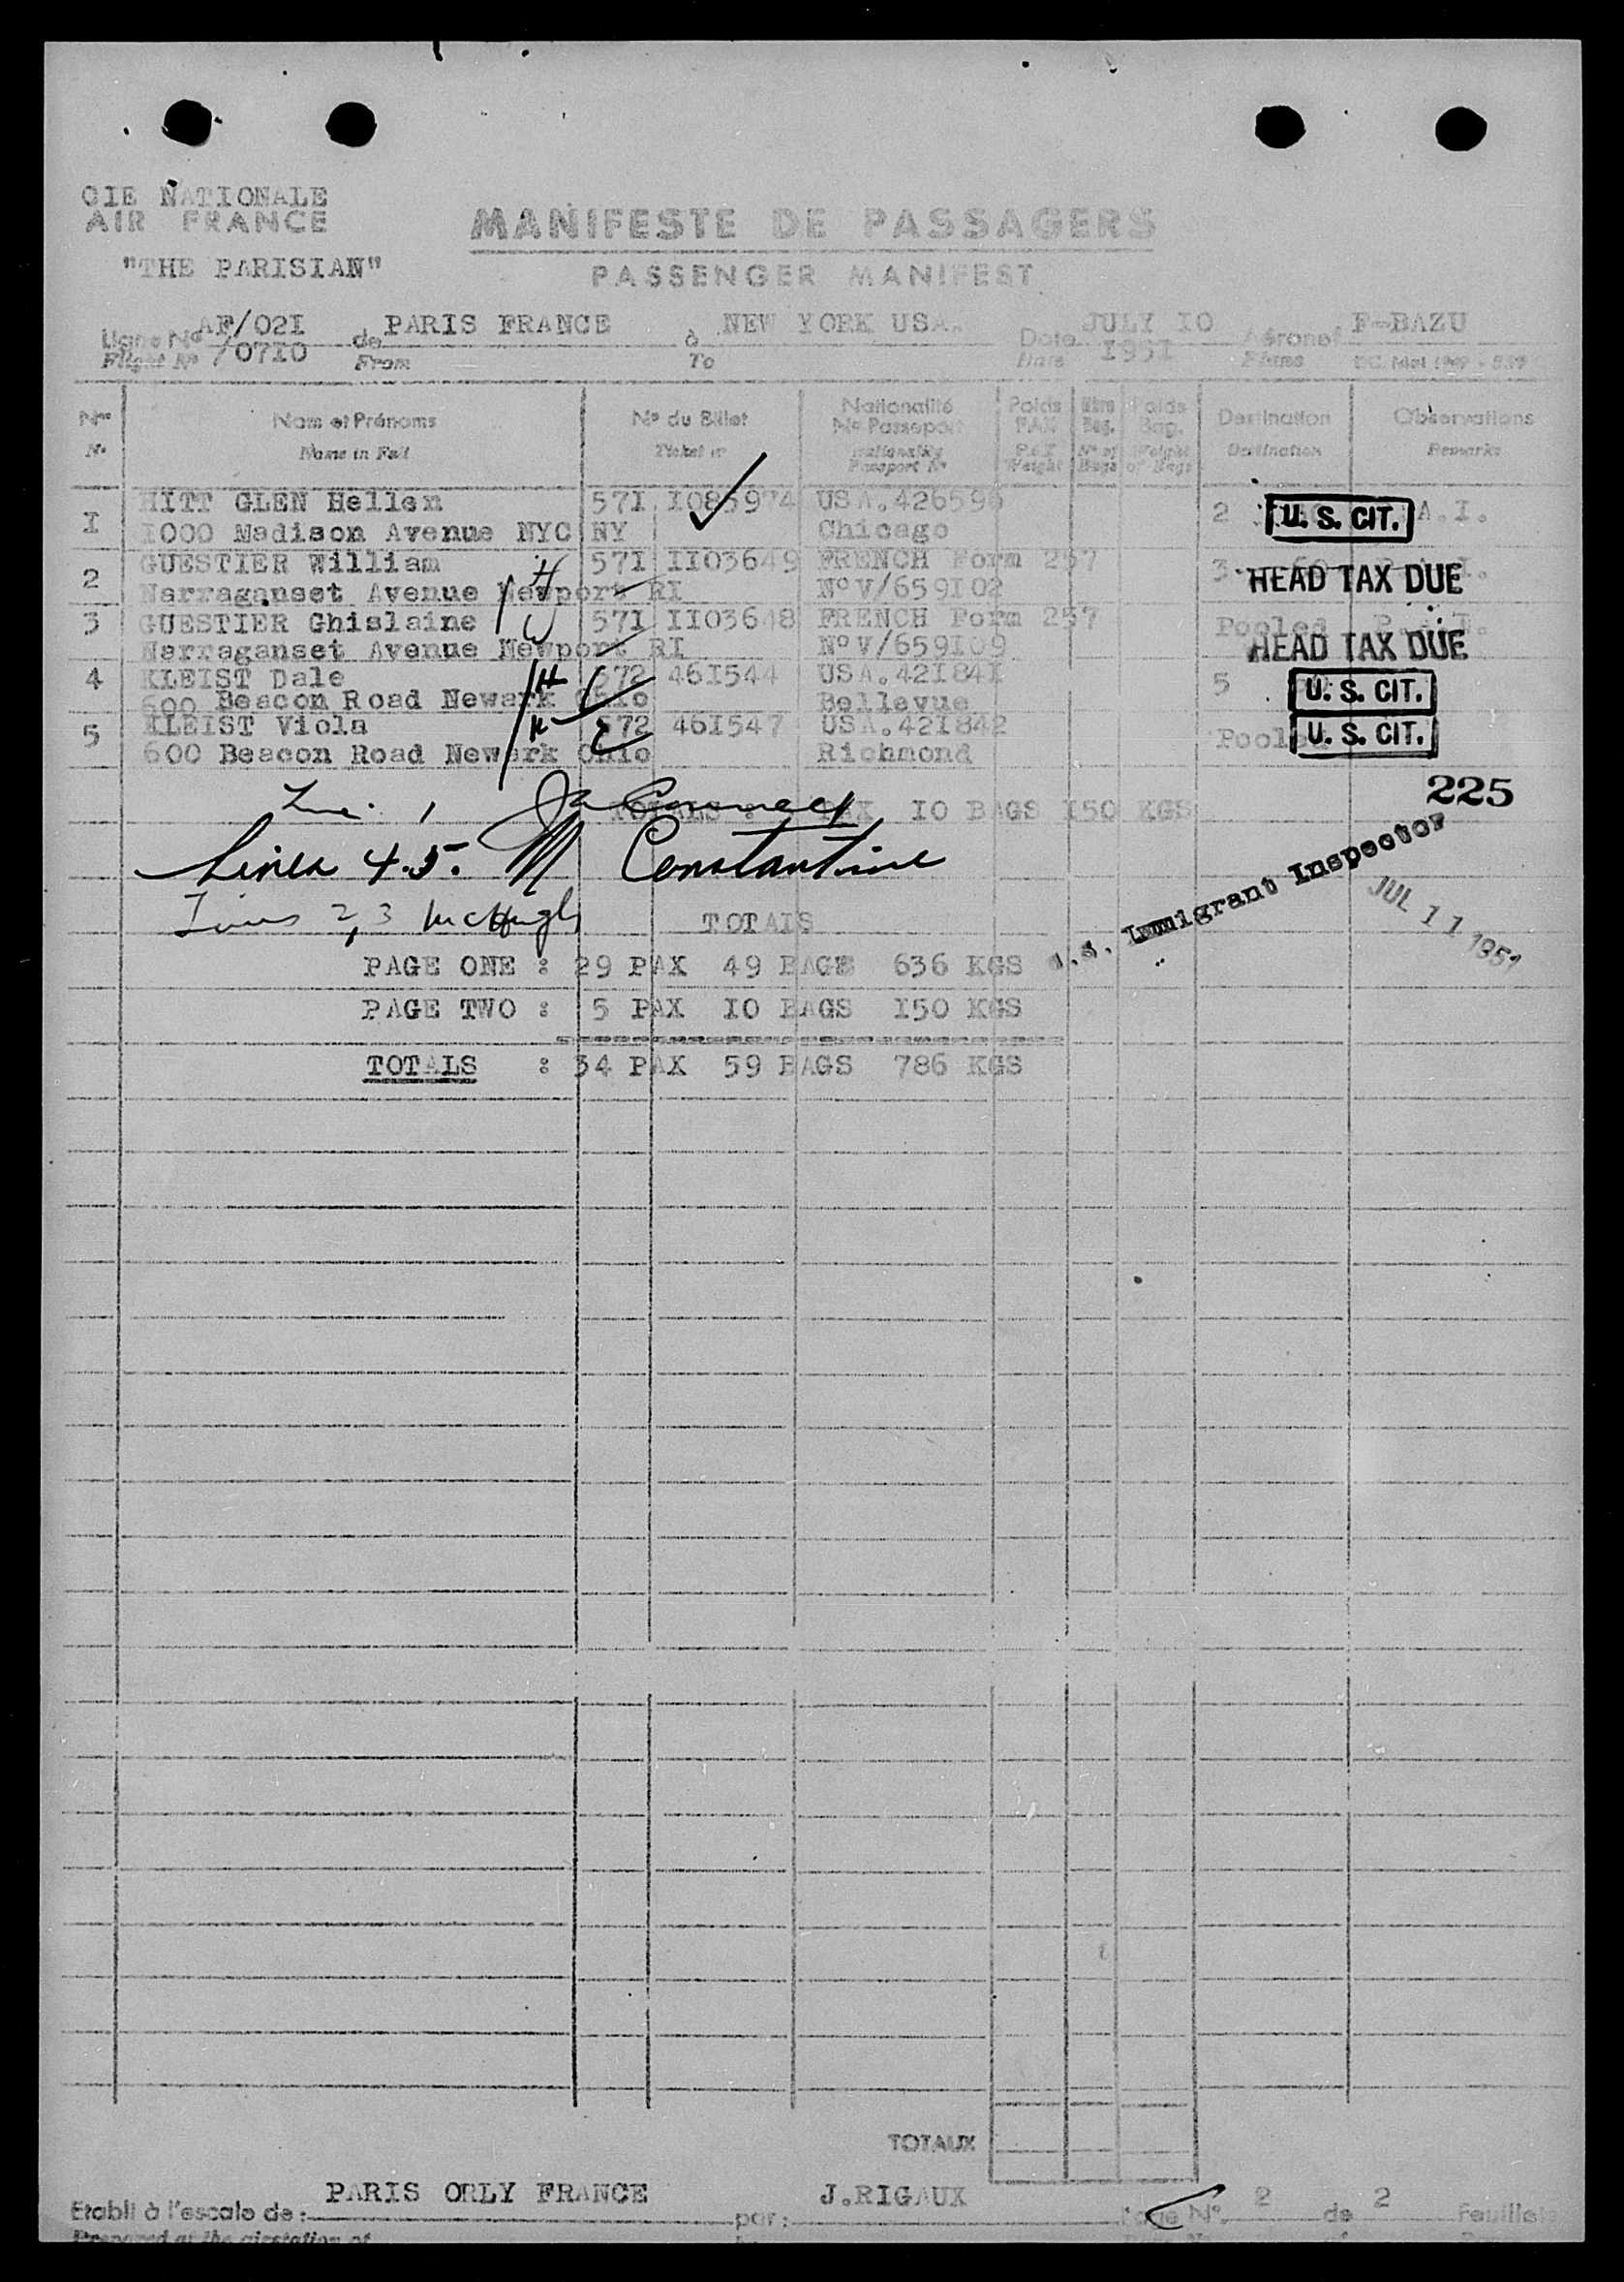 CIE NATIONALE
AIR FRANCE
"THE PARISIAN"
MANIFESTE DE PASSAGERS
PASSENGER MANIFEST
Ligne No AF/02I de PARIS FRANCE à NEW YORK USA. Date JULY IO Aéronef F-BAZU
Flight No /07IO From To Date I95I
Nos Nom et Prénoms No du Billet Nationalité No Passeport Poids PAX Bag. Poids Bag. Destination Observations
No Name in Full Ticket no Nationality Passport No PAX Weight No of Bags Weight of Bags Destination Remarks
I HITT GLEN Hellen 57I I085974 USA.42659 2 U. S. CIT. A.I.
I000 Madison Avenue NYC NY Chicago
2 GUESTIER William H 57I II03649 FRENCH Form 257 3 HEAD TAX DUE
Narraganset Avenue Newport RI No V/659I02
3 GUESTIER Ghislaine W 57I II03648 FRENCH Form 257 Pooled HEAD TAX DUE
Narraganset Avenue Newport RI No V/659I09
4 KLEIST Dale H 572 46I544 USA.42I84I 5 U. S. CIT.
600 Beacon Road Newark Ohio Bellevue
5 KLEIST Viola 572 46I547 USA.42I842 Pooled U. S. CIT.
600 Beacon Road Newark Ohio Richmond
225
TOTALS : PAX IO BAGS I50 KGS
Lines 4.5. M Constantine
Lines 2,3 McHugh
U.S. Immigrant Inspector
JUL 11 1951
TOTALS
PAGE ONE : 29 PAX 49 BAGS 636 KGS
PAGE TWO : 5 PAX IO BAGS I50 KGS
TOTALS : 34 PAX 59 BAGS 786 KGS
TOTAUX
Etabli à l'escale de : PARIS ORLY FRANCE par : J.RIGAUX Page No. 2 de 2 Feuillets
Prepared at the airstation of